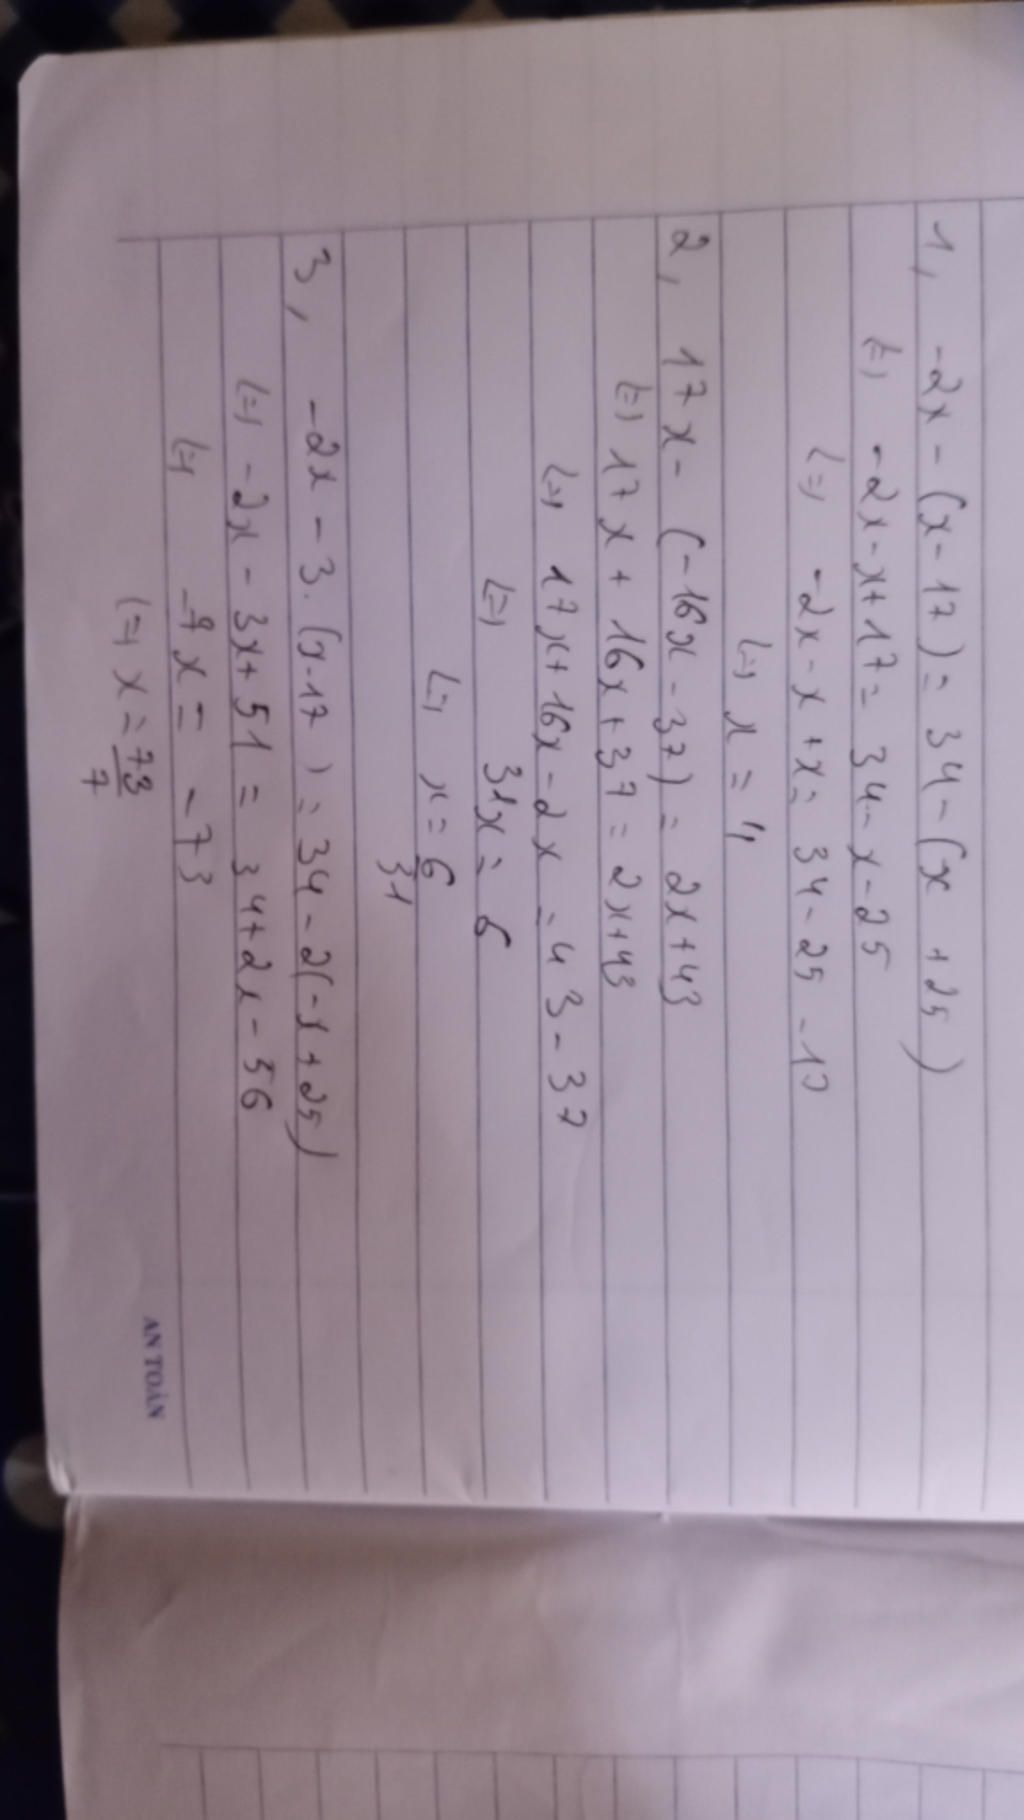 1, -2x - (x - 17) = 34 - (x + 25)
(=) -2x - x + 17 = 34 - x - 25
(=) -2x - x + x = 34 - 25 - 17
(=) x = 4
2, 17x - (-16x - 37) = 2x + 43
(=) 17x + 16x + 37 = 2x + 43
(=) 17x + 16x - 2x = 43 - 37
(=) 31x = 6
(=) x = 6/31
3, -2x - 3. (x - 17) = 34 - 2(-x + 25)
(=) -2x - 3x + 51 = 34 + 2x - 56
(=) -7x = -73
(=) x = 73/7
AN TOÀN